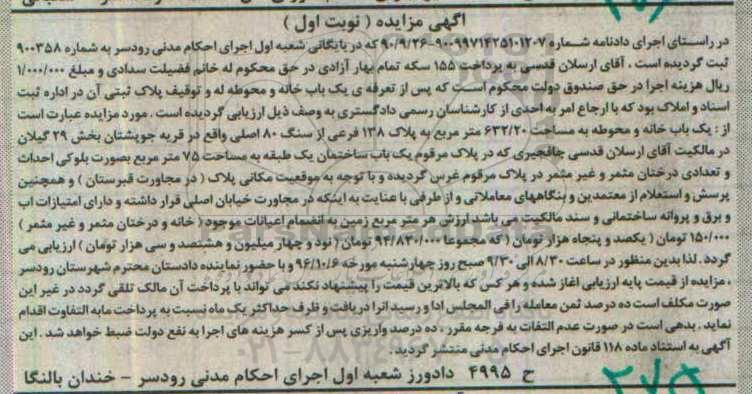 آگهی مزایده ( نوبت اول )
در راستای اجرای دادنامه شماره ۹۰۰۹۹۷۱۴۲۵۱۰۱۲۰۷-۹۰/۹/۲۶ که در بایگانی شعبه اول اجرای احکام مدنی رودسر به شماره ۹۰۰۳۵۸
ثبت گردیده است ، آقای ارسلان قدسی به پرداخت ۱۵۵ سکه تمام بهار آزادی در حق محکوم له خانم فضیلت سدادی و مبلغ ۱/۰۰۰/۰۰۰
ریال هزینه اجرا در حق صندوق دولت محکوم است که پس از تعرفه ی یک باب خانه و محوطه له و توقیف پلاک ثبتی آن در اداره ثبت
اسناد و املاک بود که با ارجاع امر به احدی از کارشناسان رسمی دادگستری به وصف ذیل ارزیابی گردیده است . مورد مزایده عبارت است
از : یک باب خانه و محوطه به مساحت ۶۳۲/۲۰ متر مربع به پلاک ۱۳۸ فرعی از سنگ ۸۰ اصلی واقع در قریه جوپشتان بخش ۲۹ گیلان
در مالکیت آقای ارسلان قدسی چافجیری که در پلاک مرقوم یک باب ساختمان یک طبقه به مساحت ۷۵ متر مربع بصورت بلوکی احداث
و تعدادی درختان مثمر و غیر مثمر در پلاک مرقوم غرس گردیده و با توجه به موقعیت مکانی پلاک ( در مجاورت قبرستان ) و همچنین
پرسش و استعلام از معتمدین و بنگاههای معاملاتی و از طرفی با عنایت به اینکه در مجاورت خیابان اصلی قرار داشته و دارای امتیازات اب
و برق و پروانه ساختمانی و سند مالکیت می باشد ارزش هر متر مربع زمین به انضمام اعیانات موجود ( خانه و درختان مثمر و غیر مثمر )
۱۵۰/۰۰۰ تومان ( یکصد و پنجاه هزار تومان ) که مجموعا ۹۴/۸۳۰/۰۰۰ تومان ( نود و چهار میلیون و هشتصد و سی هزار تومان ) ارزیابی می
گردد . لذا بدین منظور در ساعت ۸/۳۰ الی ۹/۳۰ صبح روز چهارشنبه مورخه ۹۶/۱۰/۶ و با حضور نماینده دادستان محترم شهرستان رودسر
، مزایده از قیمت پایه ارزیابی اغاز شده و هر کس که بالاترین قیمت را پیشنهاد نکند می تواند با پرداخت آن مالک تلقی گردد در غیر این
صورت مکلف است ده درصد ثمن معامله را فی المجلس ادا و رسید انرا دریافت و ظرف حداکثر یک ماه نسبت به پرداخت مابه التفاوت اقدام
نماید . بدهی است در صورت عدم التفات به فرجه مقرر ، ده درصد واریزی پس از کسر هزینه های اجرا به نفع دولت ضبط خواهد شد . این
آگهی به استناد ماده ۱۱۸ قانون اجرای احکام مدنی منتشر گردید .
ح ۴۹۹۵ دادورز شعبه اول اجرای احکام مدنی رودسر - خندان بالنگا
۲۷۵